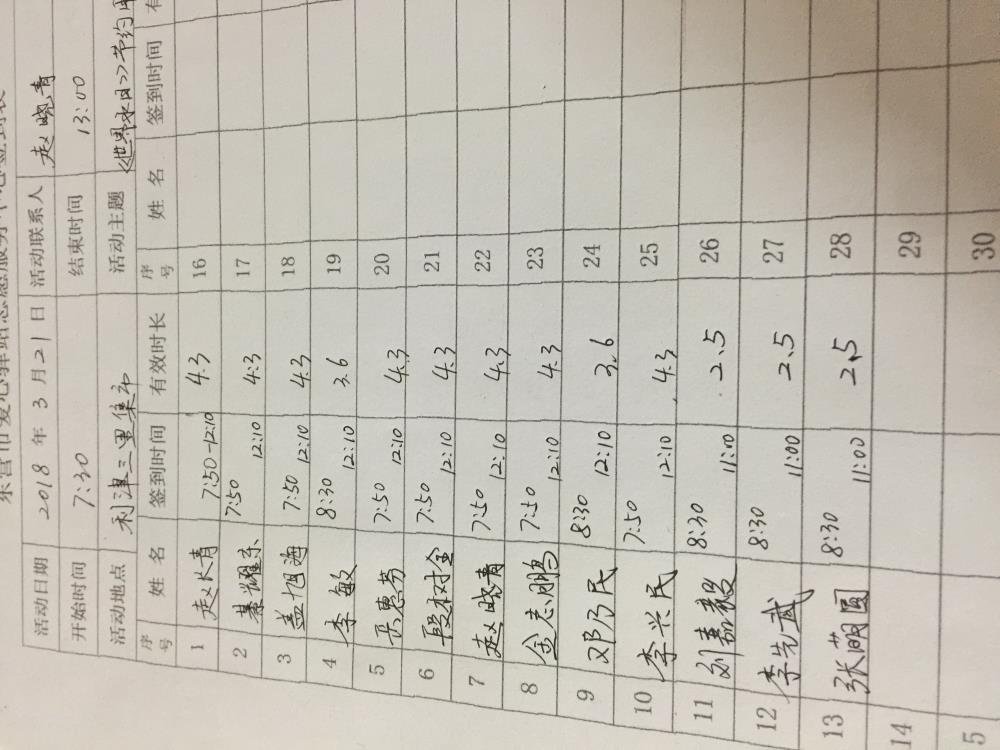 活动日期 2018 年 3 月 21 日 活动联系人 赵晓青
开始时间 7:30 结束时间 13:00
活动地点 利津三里集市 活动主题 《世界水日》节约
序号 姓名 签到时间 有效时长 序号 姓名 签到时间
1 7:50-12:10 4.3 16
2 7:50 12:10 4.3 17
3 盖旭海 7:50 12:10 4.3 18
4 李敏 8:30 12:10 3.6 19
5 7:50 12:10 4.3 20
6 段树全 7:50 12:10 4.3 21
7 赵晓青 7:50 12:10 4.3 22
8 金志鹏 7:50 12:10 4.3 23
9 邓乃民 8:30 12:10 3.6 24
10 李兴民 7:50 12:10 4.3 25
11 刘嘉毅 8:30 11:00 2.5 26
12 李先武 8:30 11:00 2.5 27
13 张萌圆 8:30 11:00 2.5 28
14 29
5 30